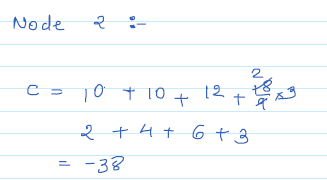 Node 2 :-
C = 10 + 10 + 12 + 2 18/9 × 3
2 + 4 + 6 + 3
= -38